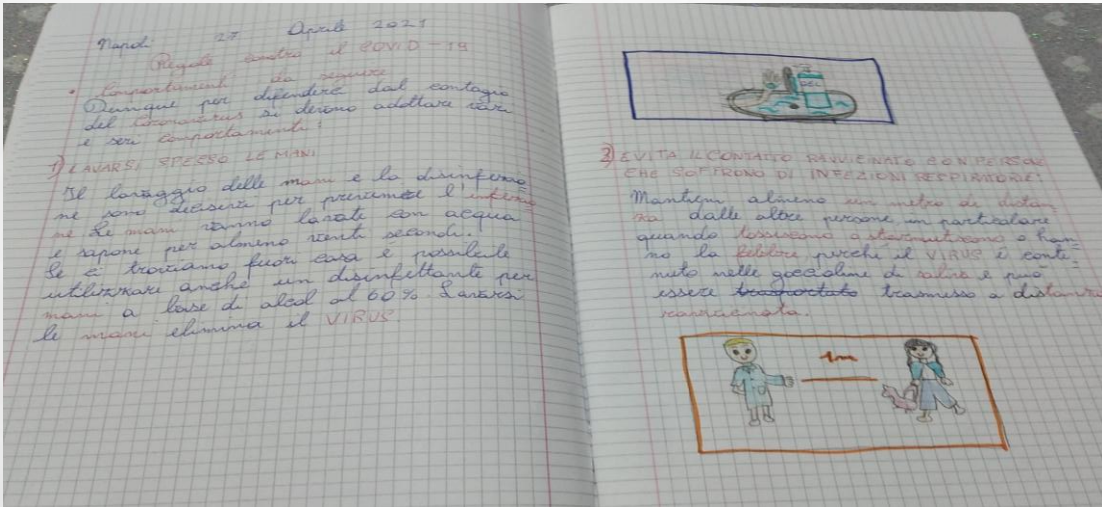 Napoli 27 Aprile 2021
Regole contro il COVID-19
• Comportamenti da seguire
Dunque per difendere dal contagio
del Coronavirus si devono adottare vari
e seri comportamenti:
1) LAVARSI SPESSO LE MANI
Il lavaggio delle mani e la disinfezio=
ne sono decisivi per prevenire l'infezio
ne Le mani vanno lavate con acqua
e sapone per almeno venti secondi.
Se ci troviamo fuori casa è possibile
utilizzare anche un disinfettante per
mani a base di alcol al 60%. Lavarsi
le mani elimina il VIRUS
GEL
2) EVITA IL CONTATTO RAVVICINATO CON PERSONE
CHE SOFFRONO DI INFEZIONI RESPIRATORIE:
Mantieni almeno un metro di distan
za dalle altre persone in particolare
quando tossiscono o starnutiscono o han=
no la febbre perché il VIRUS è conte=
nuto nelle goccioline di saliva e può
essere trasportato trasmesso a distanza
ravvicinata.
1m